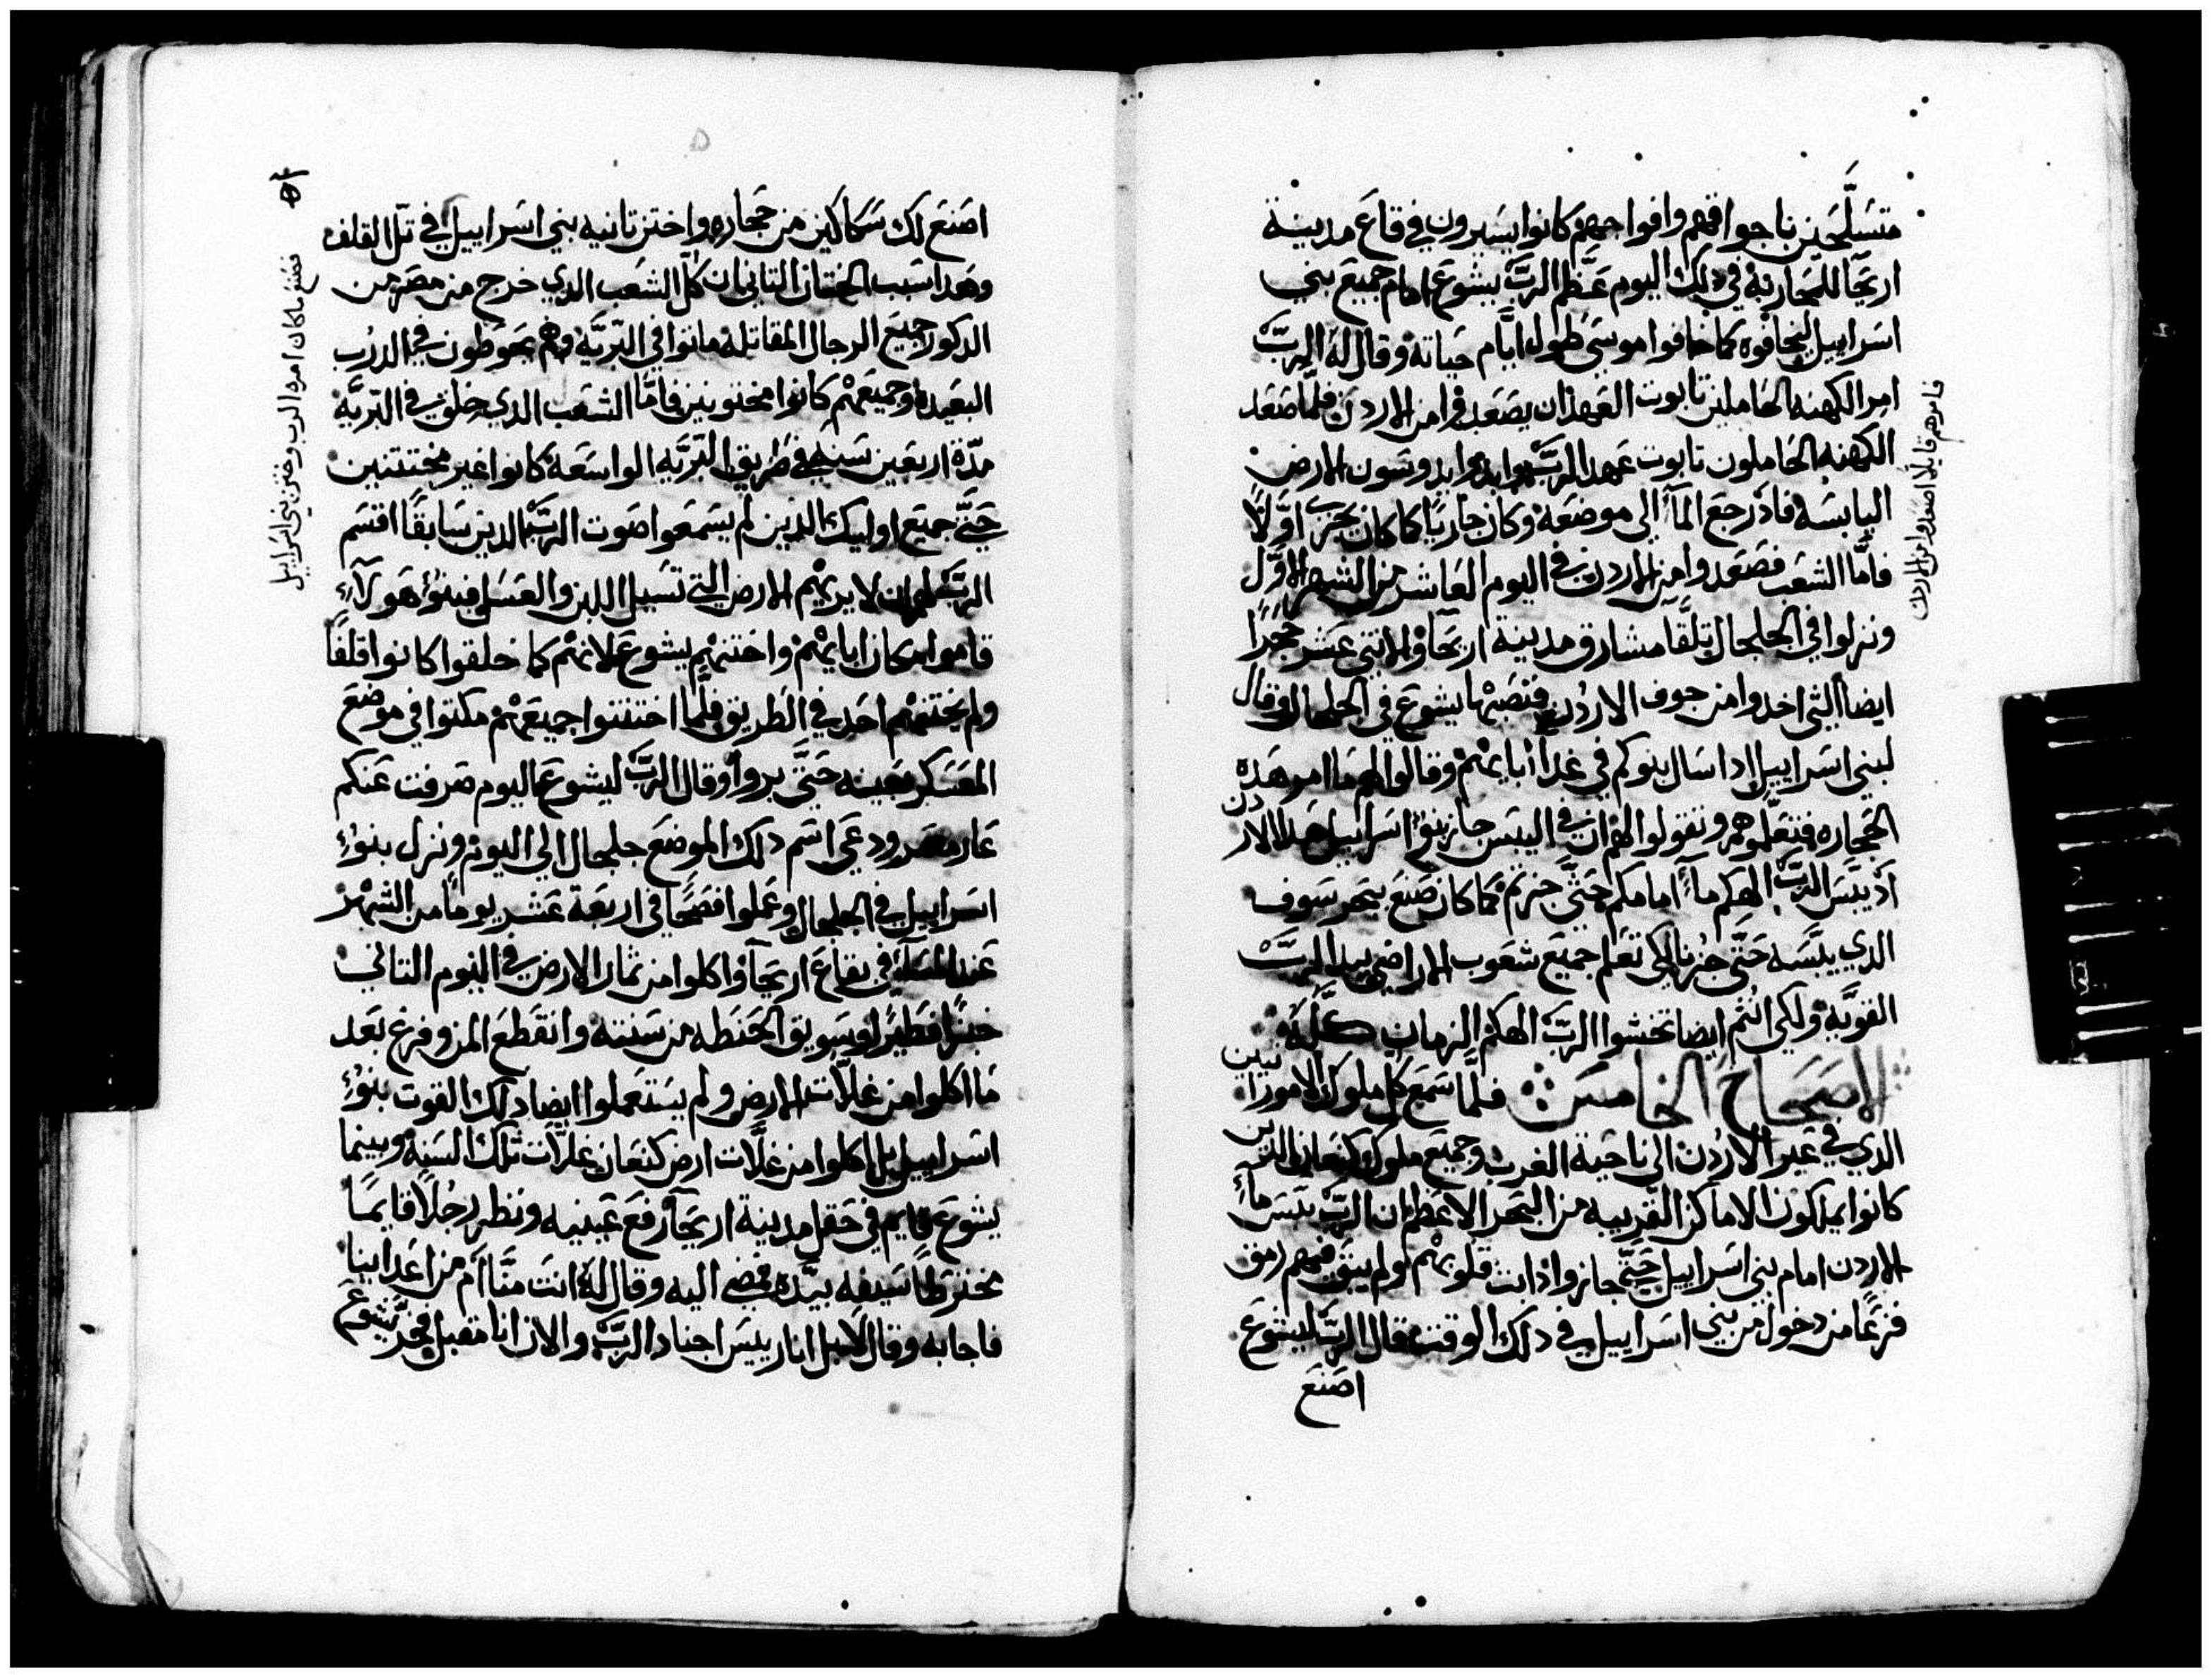 متسلحين باجواقهم وافواجهم كانوا يسيرون في قاع مدينة
اريحا للمحاربة في دلك اليوم عظم الرب يشوع امام جميع بني
اسراييل ليخافوه كما خافوا موسى طول ايام حياته وقال له الرب
امر الكهنه الحاملين تابوت العهد ان يصعدوا من الاردن فلما صعد
الكهنه الحاملون تابوت عهد الرب وابدوا يدوسون الارض
اليابسه فاذ رجع المآ الى موضعه وكان جاريا كما كان يجرى اولا
فاما الشعب فصعدوا من الاردن في اليوم العاشر من الشهر الاول
ونزلوا في الجلجال تلقآ مشارق مدينة اريحا والاتنى عشر حجرا
ايضا التى اخدوا من جوف الاردن فنصبها يشوع في الجلجال وقال
لبني اسراييل ادا سال بنوكم في غد ابايهم وقالوا لهم ما امر هده
الحجاره فتعلموهم وتقولوا لهم ان في اليبس جاز بنو اسراييل هدا الاردن
اذ يبس الرب الهكم مآ امامكم حتى جزتم كما كان صنع بنحر سوف
الدي يبسه حتى جزنا لكي تعلم جميع شعوب الاراضي يد الرب
القويه ولكي انتم ايضا تخشوا الرب الهكم الزمان كله
الاصحاح الخامس فلما سمع كل ملوك الامورانيين
الدي في عبر الاردن الى ناحية الغرب وجميع ملوك كنعان الدين
كانوا يملكون الاماكن القريبه من البحر الاعظم ان الرب يبس مآ
الاردن امام بني اسراييل حتى جازوا ذابت قلوبهم ولم يبق فيهم رمق
فزعا من دخول من بني اسراييل في دلك الوقت قال الرب ليشوع
اصنع
فامرهم قايلا اصعدوا من الاردن
٥٢
اصنع لك سكاكين من حجاره واختن تانيه بني اسراييل في تل القلف
وهدا سبب الختان التاني ان كل الشعب الدي خرج من مصر من
الدكور جميع الرجال المقاتلة ماتوا في البريه وهم يحوطون في الدرب
البعيده وجميعهم كانوا مختونين فاما الشعب الدي خلق في البريه
مدة اربعين سنه في طريق البريه الواسعه كانوا غير مختتنين
حتى جميع اوليك الدين لم يسمعوا صوت الرب الدين سابقا اقسم
الرب لهم ان لا يريهم الارض التي تسيل اللبن والعسل فبنو هولاء
قاموا مكان ابايهم واختنهم يشوع لانهم كما خلقوا كانوا قلفا
ولم يختنهم احد في الطريق فلما اختتنوا جميعهم مكتوا في موضع
المعسكر بعينه حتى بروا وقال الرب ليشوع اليوم صرفت عنكم
عار مصر ودعى اسم دلك الموضع جلجال الى اليوم ونزل بنو
اسراييل في الجلجال وعملوا فصحا في اربعة عشر يوما من الشهر
عند المسآ في بقاع اريحآ واكلوا من ثمار الارض في اليوم التاني
خبزا فطيرا وسويق الحنطه من سنته وانقطع المن وفرغ بعد
ما اكلوا من غلات الارض ولم يستعملوا ايضا دلك القوت بنو
اسراييل بل اكلوا من غلات ارض كنعان غلات تلك السنه وبينما
يشوع قايم في حقل مدينة اريحآ رفع عينيه ونظر رجلا قايما
مخترطا سيفه بيده فمضى اليه وقال له انت منا ام من اعداينا
فاجابه وقال لا بل انا رييس اجناد الرب والان انا مقبل فخر يشوع
فصنع ما كان امره الرب وختن بني اسراييل